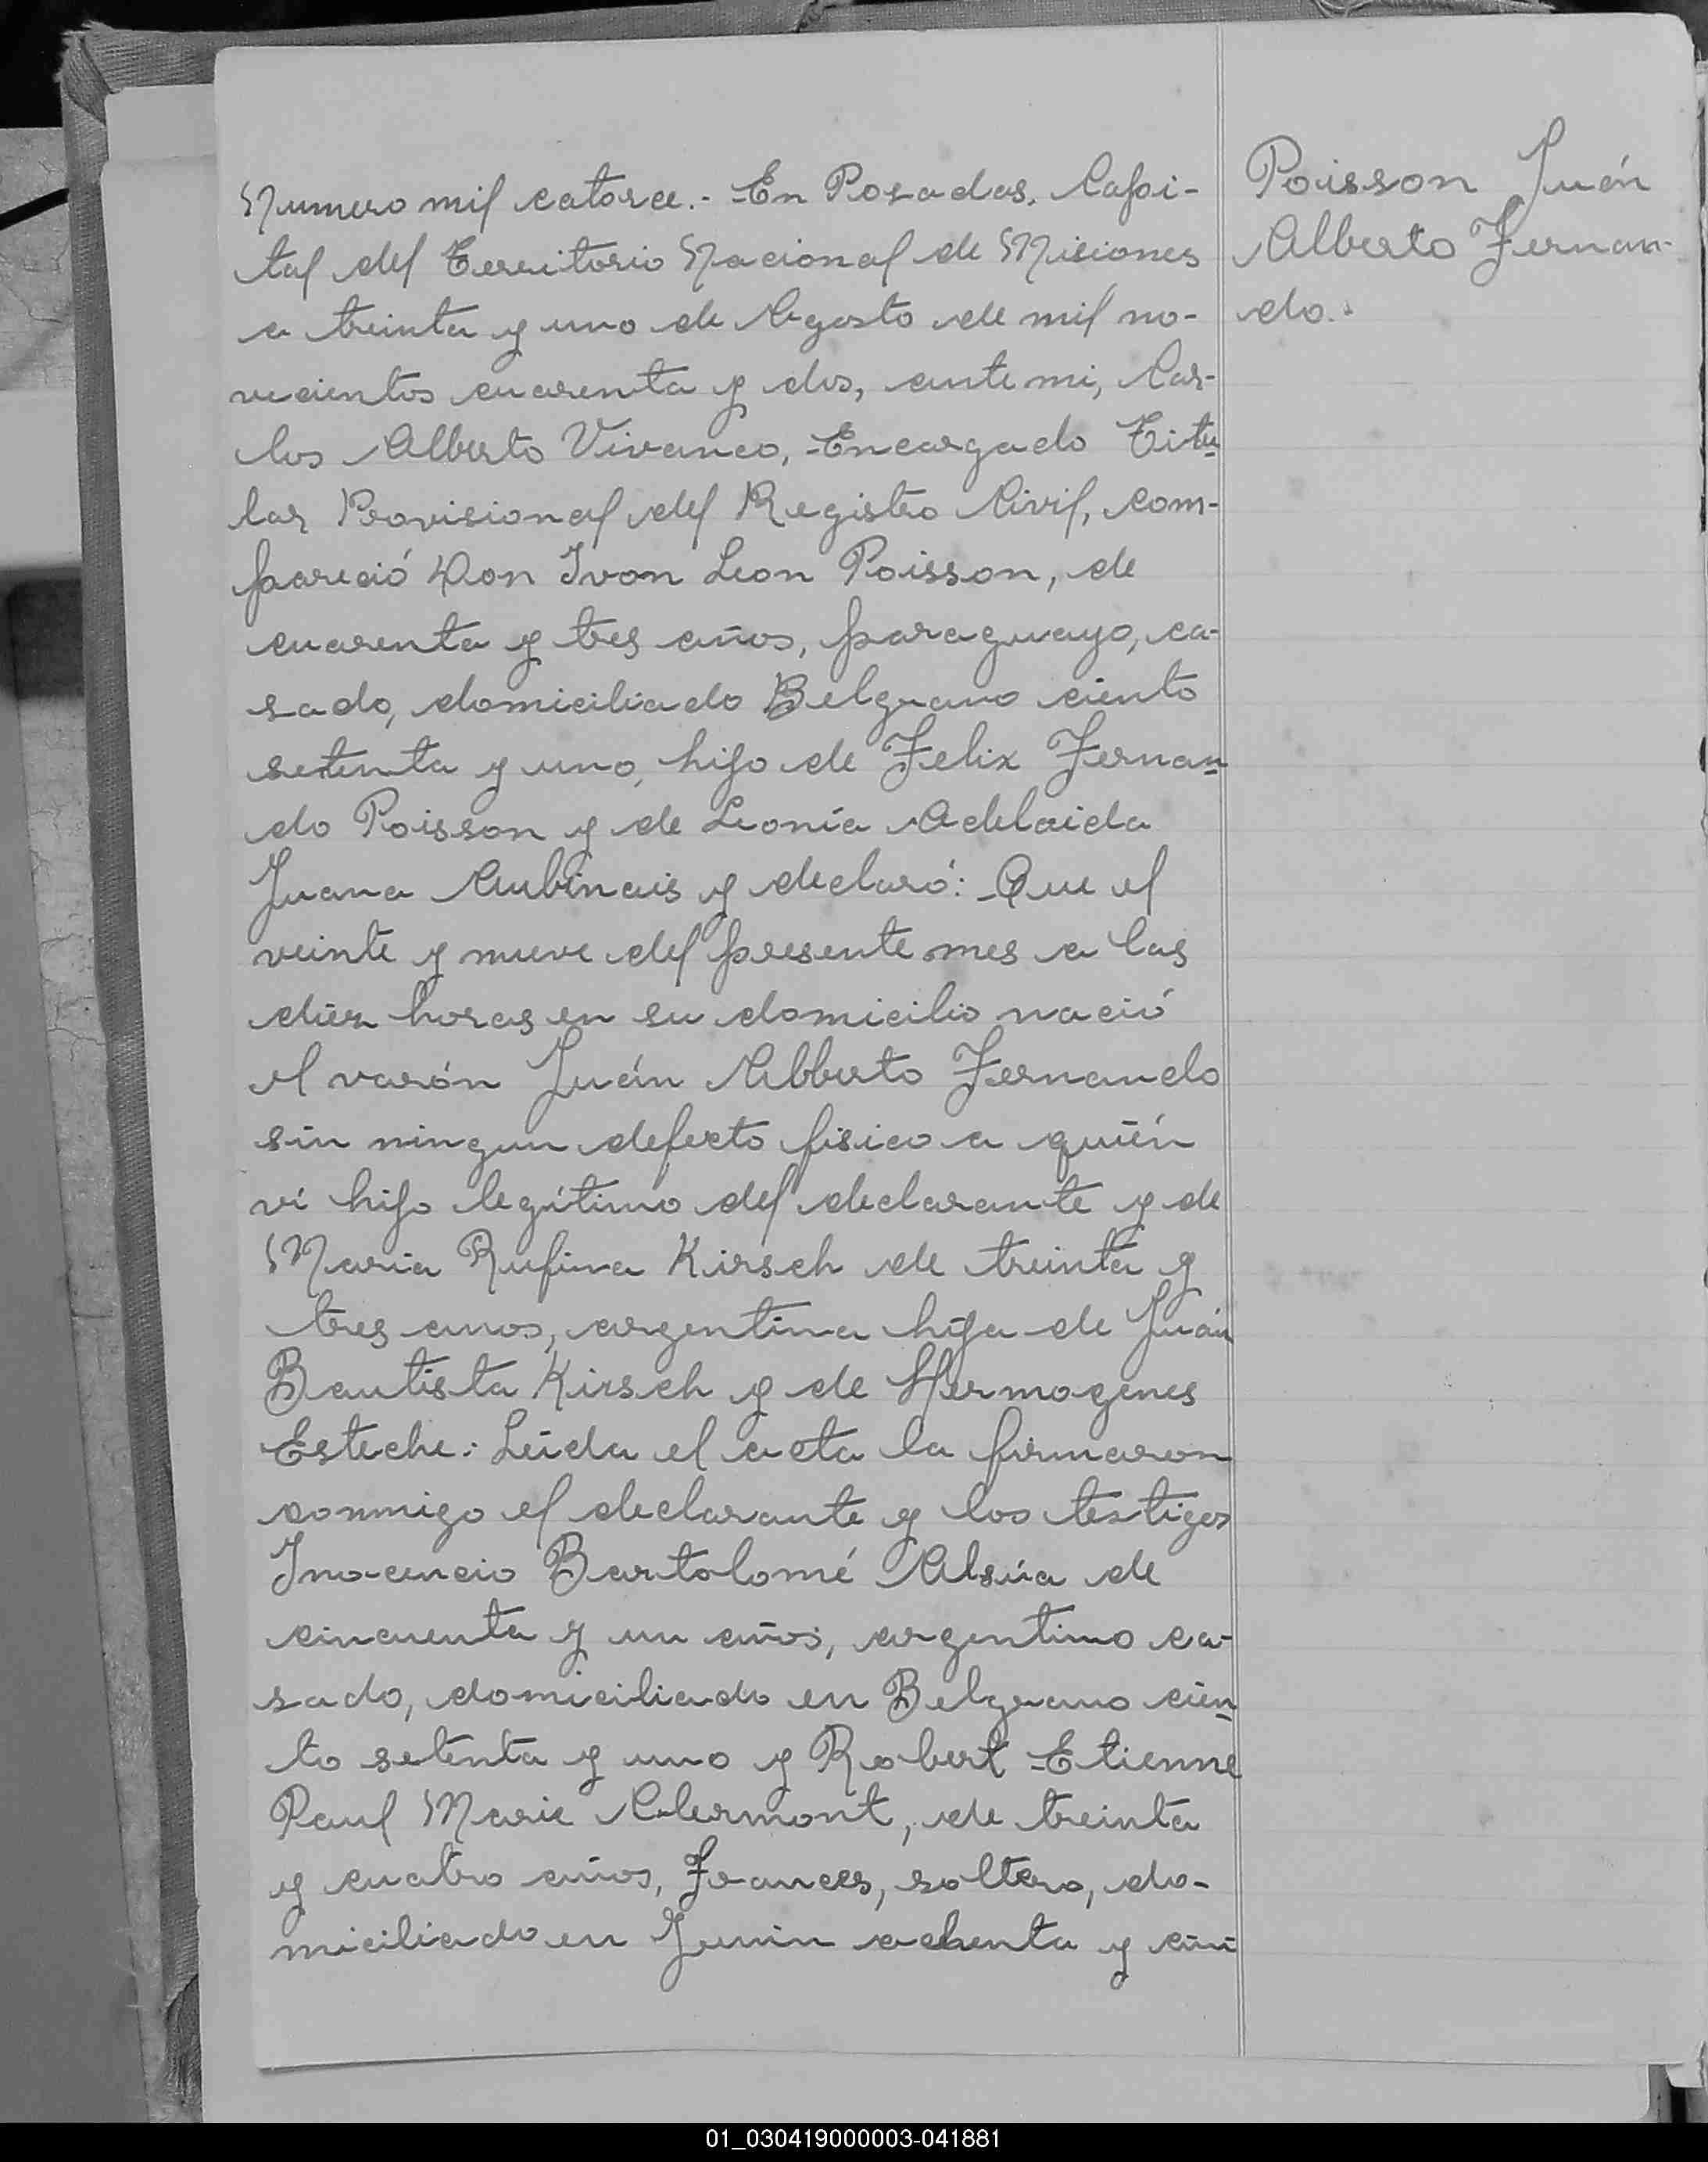 Numero mil catorce.- En Posadas, Capi-
tal del Territorio Nacional de Misiones
a treinta y uno de Agosto de mil no-
vecientos cuarenta y dos, ante mi, Car-
los Alberto Vivanco, Encargado Titu
lar Provisional del Registro Civil, com-
pareció Don Ivon Leon Poisson, de
cuarenta y tres años, paraguayo, ca-
sado, domiciliado Belgrano ciento
setenta y uno, hijo de Felix Fernan
do Poisson y de Leonia Adelaida
Juana Aubinais y declaró: Que el
veinte y nueve del presente mes a las
diez horas en su domicilio nació
el varón Juán Alberto Fernando
sin ningun defecto fisico a quién
ví hijo legítimo del declarante y de
Maria Rufina Kirsch de treinta y
tres anos, argentina hija de Juán
Bautista Kirsch y de Hermogenes
Esteche: Leida el acta la firmaron
conmigo el declarante y los testigos
Inocencio Bartolomé Alsúa de
cincuenta y un años, argentino ca-
sado, domiciliado en Belgrano cien
to setenta y uno y Robert Etienne
Paul Marie Clermont, de treinta
y cuatro años, Frances, soltero, do-
miciliado en Junin ochenta y cin
Poisson Juán
Alberto Fernan-
do.-
01_030419000003-041881